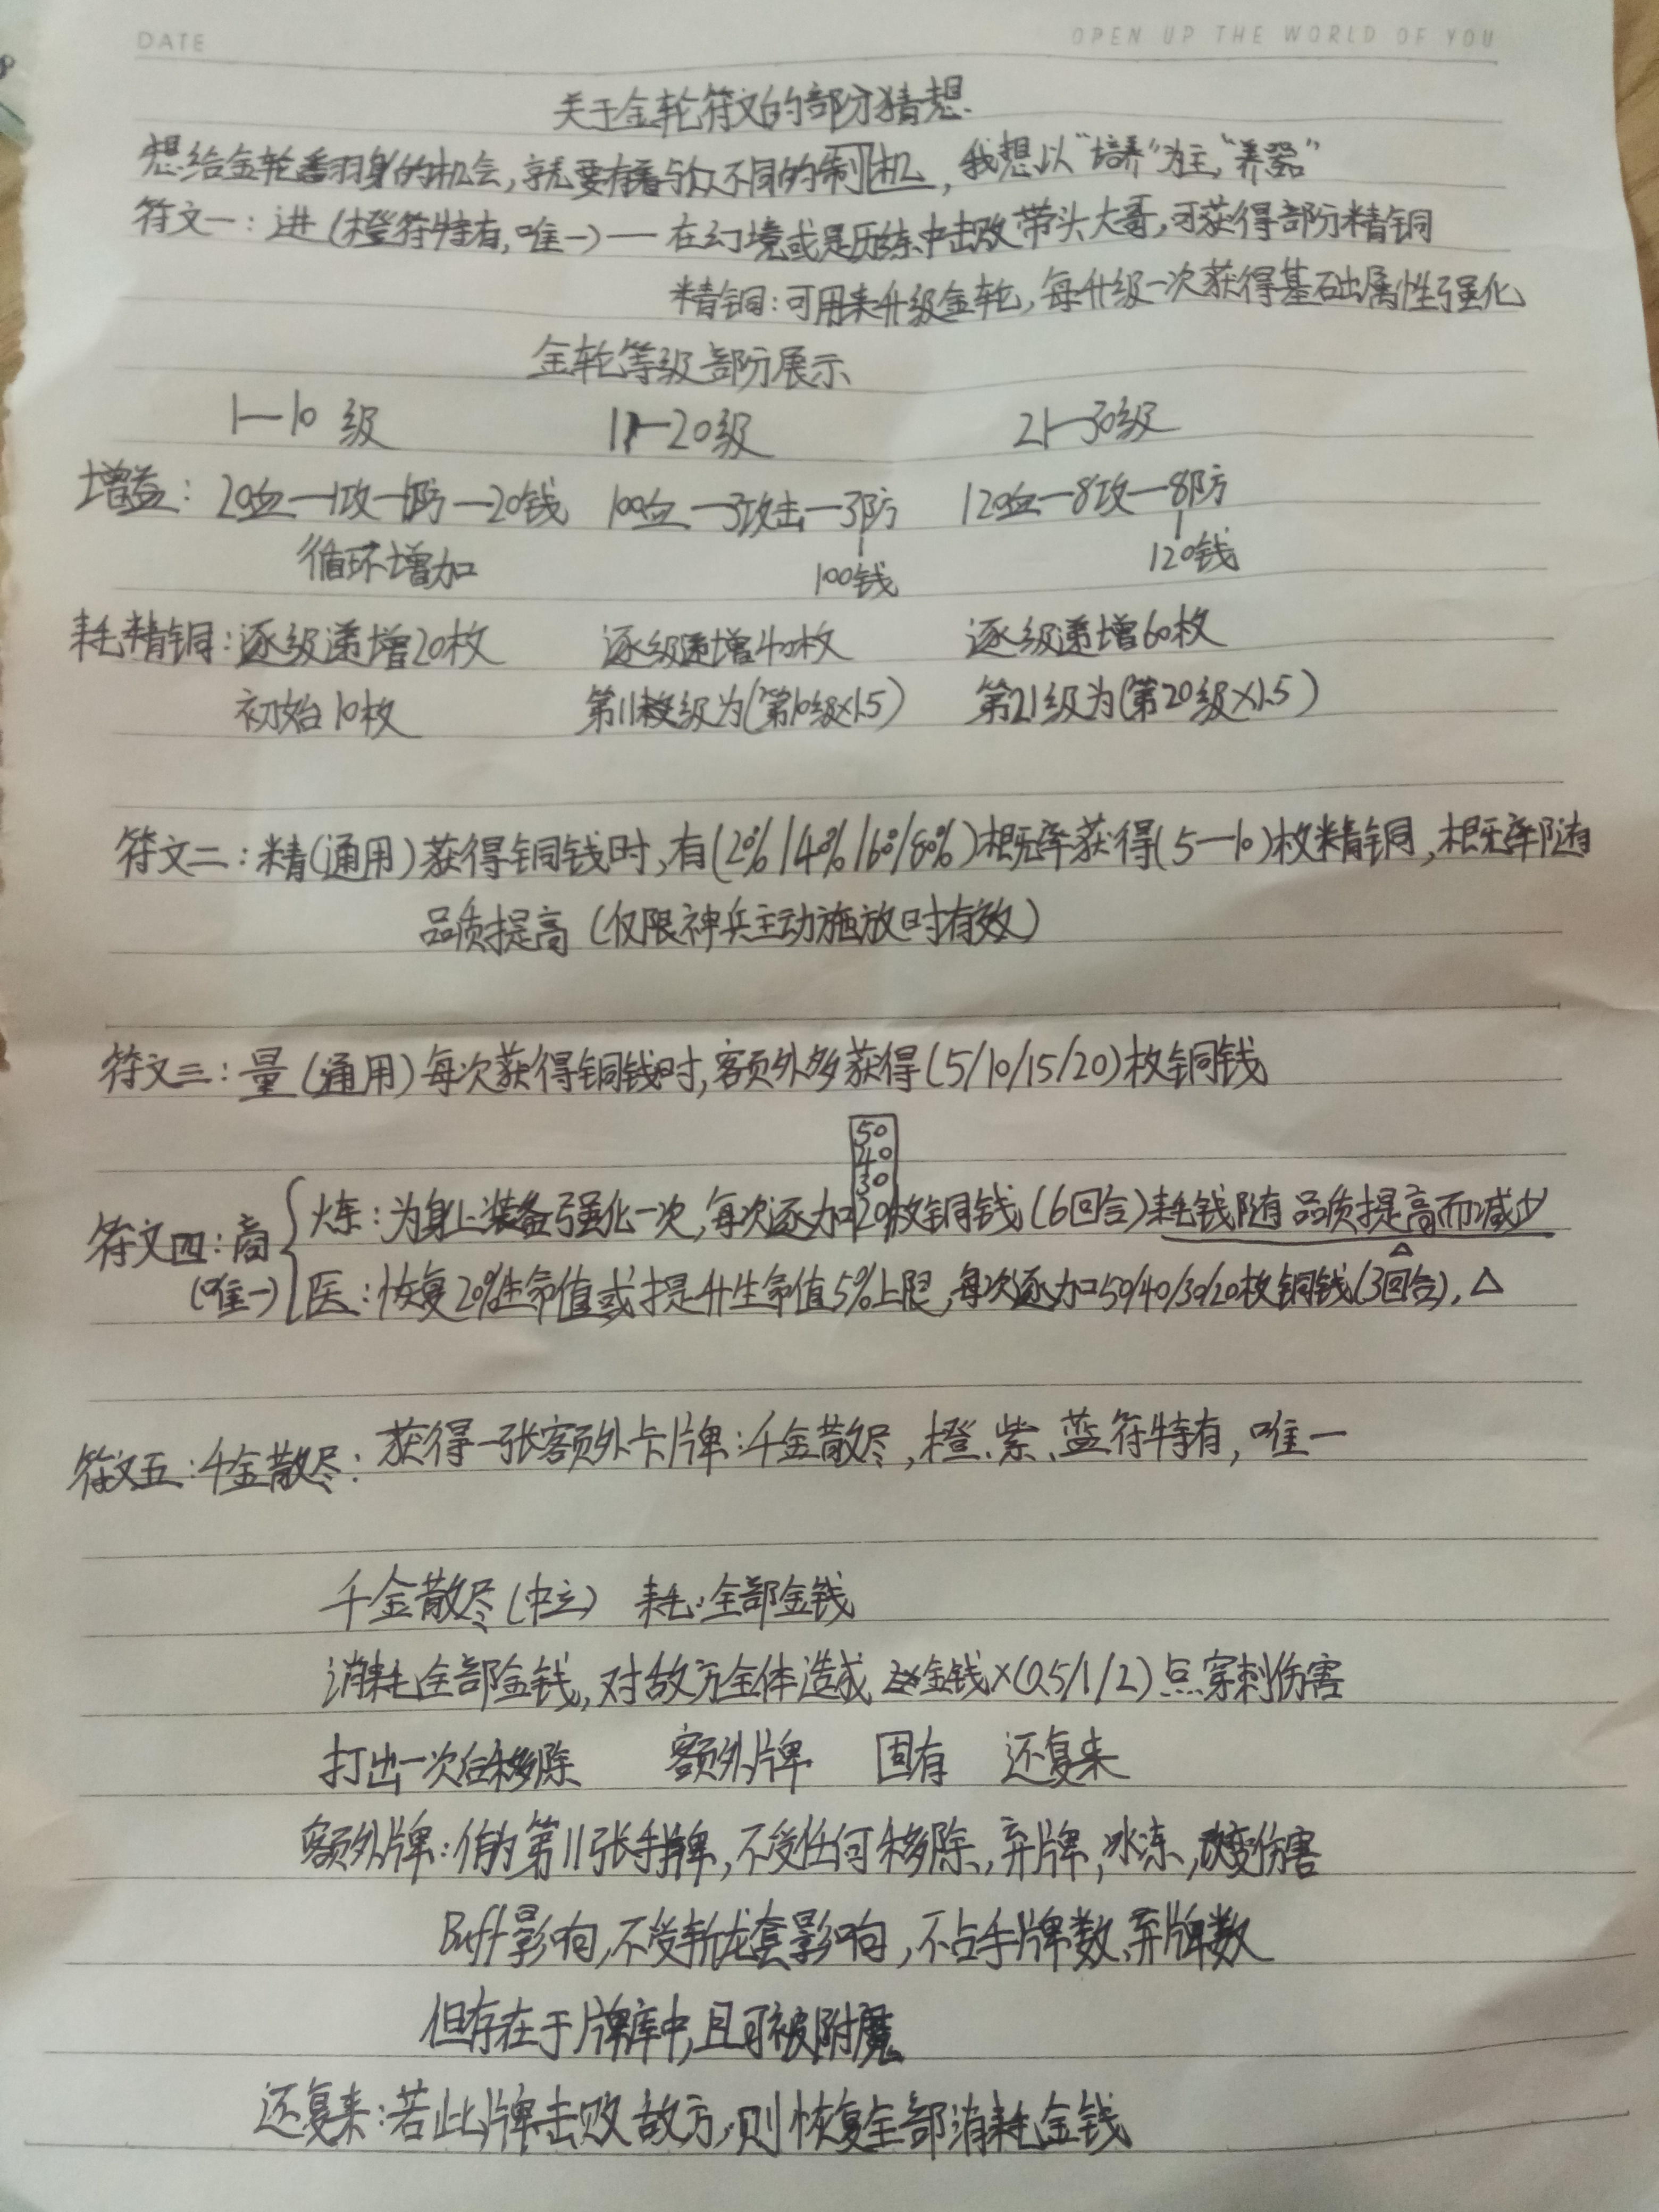 DATE
OPEN UP THE WORLD OF YOU
关于金轮符文的部分猜想.
想给金轮番羽身的机会,就要有着与众不同的制机,我想以"培养"为主,"养器"
符文一:进(橙符特有,唯一)—在幻境或是历练中击败带头大哥,可获得部分精铜
精铜:可用来升级金轮,每升级一次获得基础属性强化
金轮等级部分展示
1—10级 11—20级 21—30级
增益:20血—1攻—1防—20钱 100血—3攻击—3防 120血—8攻—8防
循环增加 100钱 120钱
耗精铜:逐级递增20枚 逐级递增40枚 逐级递增60枚
初始10枚 第11级为(第10级×1.5) 第21级为(第20级×1.5)
符文二:精(通用)获得铜钱时,有(2%/4%/6%/8%)概率获得(5—10)枚精铜,概率随
品质提高(仅限神兵主动施放时有效)
符文三:量(通用)每次获得铜钱时,额外多获得(5/10/15/20)枚铜钱
50
40
30
符文四:商 炼:为身上装备强化一次,每次逐加20枚铜钱(6回合)耗钱随品质提高而减少
△
(唯一) 医:恢复20%生命值或提升生命值5%上限,每次逐加50/40/30/20枚铜钱(3回合),△
符文五:千金散尽:获得一张额外卡牌:千金散尽,橙、紫、蓝符特有,唯一
千金散尽(中立) 耗:全部金钱
消耗全部金钱,对敌方全体造成金钱×(0.5/1/2)点穿刺伤害
打出一次后移除 额外牌 固有 还复来
额外牌:作为第11张手牌,不受任何移除,弃牌,冰冻,改变伤害
Buff影响,不受斩龙套影响,不占手牌数,弃牌数
但存在于牌库中,且可被附魔
还复来:若此牌击败敌方,则恢复全部消耗金钱